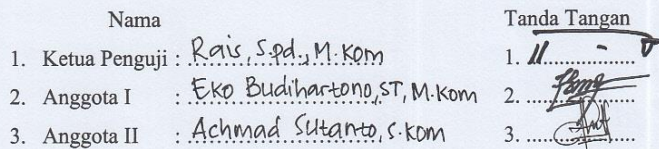 Nama Tanda Tangan
1. Ketua Penguji : Rais, S.pd., M.Kom 1. ..................
2. Anggota I : Eko Budihartono, ST, M.Kom 2. ..................
3. Anggota II : Achmad Sutanto, S.Kom 3. ..................